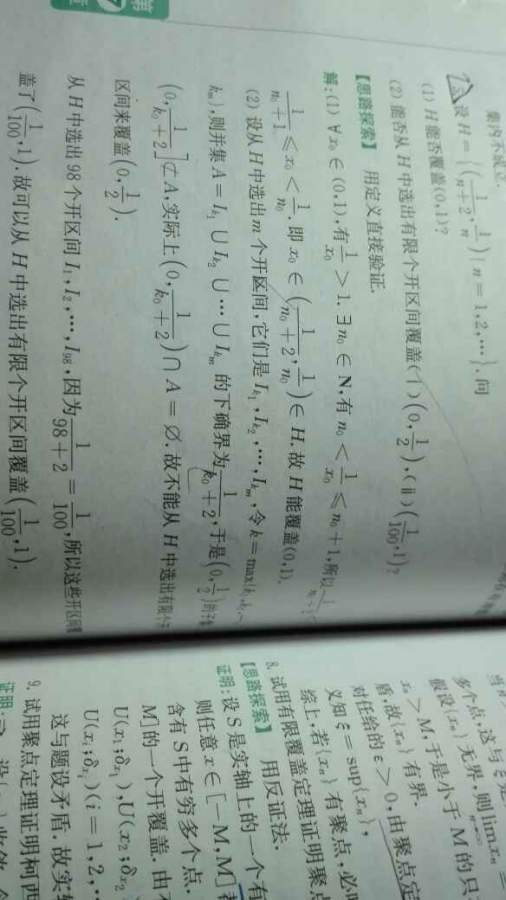 第7章
集内不成立.
7. 设 H = {(1/(n+2), 1/n) | n = 1,2,…}. 问
(1) H 能否覆盖(0,1)?
(2) 能否从 H 中选出有限个开区间覆盖(ⅰ)(0, 1/2),(ⅱ)(1/100, 1)?
【思路探索】 用定义直接验证.
解:(1) ∀x₀ ∈ (0,1),有 1/x₀ > 1. ∃n₀ ∈ N,有 n₀ < 1/x₀ ⩽ n₀+1,所以
1/(n₀+1) ⩽ x₀ < 1/n₀, 即 x₀ ∈ (1/(n₀+2), 1/n₀) ∈ H. 故 H 能覆盖(0,1).
(2) 设从 H 中选出 m 个开区间,它们是 I_{k₁}, I_{k₂}, …, I_{k_m}, 令 k = max{k₁,k₂,
k_m},则并集 A = I_{k₁} ∪ I_{k₂} ∪ … ∪ I_{k_m} 的下确界为 1/(k₀+2), 于是(0, 1/2)的子
(0, 1/(k₀+2)] ⊄ A,实际上(0, 1/(k₀+2)) ∩ A = ∅. 故不能从 H 中选出有限个
区间来覆盖(0, 1/2).
从 H 中选出 98 个开区间 I₁, I₂, …, I₉₈, 因为 1/(98+2) = 1/100, 所以这些开区间
盖了(1/100, 1). 故可以从 H 中选出有限个开区间覆盖(1/100, 1).
多个点,这与 ξ 是
假设{xₙ}无界,则lim xₙ =
xₙ > M, 于是小于 M 的只
盾,故{xₙ}有界.
对任给的 ε > 0, 由聚点定
义知 ξ = sup{xₙ},
综上,若{xₙ}有聚点,必
8. 试用有限覆盖定理证明聚点
【思路探索】 用反证法.
证明:设 S 是实轴上的一个有
则任意 x ∈ [−M, M]
含有 S 中有穷多个点.
M]的一个开覆盖. 由
U(x₁;δ_{x₁}), U(x₂;δ_{x₂}
U(xᵢ;δ_{xᵢ})(i = 1,2,
这与题设矛盾, 故实
9. 试用聚点定理证明柯西